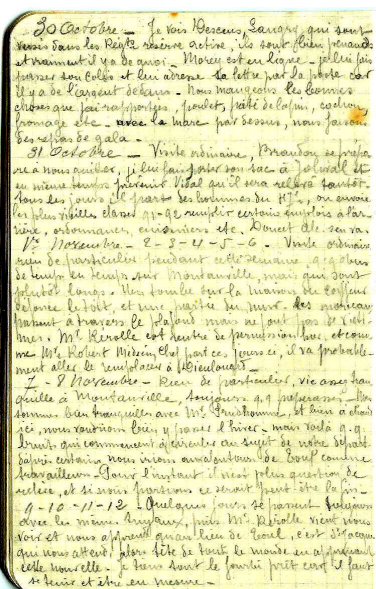 30 Octobre — Je vois Descens, Langry, qui sont
versés dans les Régts réserve active, ils sont bien penauds
et vraiment il y a de quoi. Morey est en ligne — je lui fais
passer son colis et lui adresse sa lettre par la poste car
il y a de l'argent dedans. Nous mangeons les bonnes
choses que j'ai rapportées, poulet, pâté de lapin, cochon,
fromage etc — avec la marc par dessus, nous faisons
des repas de gala —
31 Octobre — Visite ordinaire, Brandon se prépa
re à nous quitter, je lui fais porter son sac à et
en même temps prévenir Vidal qu'il sera relevé tantôt
tous les jours il part des hommes du on envoie
les plus vieilles classes 91-92 remplir certains emplois à l'ar
rière, ordonnances, cuisiniers etc. Douet s'en va
1er Novembre — 2-3-4-5-6. Visite ordinaire
rien de particulier pendant cette semaine, q.q obus
de temps en temps sur Montauville, mais qui sont
plutôt longs. Un tombe sur la maison du coiffeur
défonce le toit, et une partie du mur. des morceaux
passent à travers le plafond mais ne font pas de victi-
mes. Mr Kerolle est rentré de permission et com
me Mr Robert Médecin Chef part ces jours ci, il va probable-
ment aller le remplacer à Dieulouard —
7 - 8 Novembre — Rien de particulier, vie assez tran
quille à Montauville, toujours q.q — Nous
sommes bien tranquilles avec Mr Prudhomme, et bien à
ici, nous voudrions bien y passer l'hiver — mais voilà q.q.
bruits qui commencent à circuler au sujet de notre départ
d'après certains nous irions aux de Toul comme
travailleurs — Pour l'instant il n'est plus question de
relève, et si nous partions ce serait peut être la fin —
9-10-11-12 — Quelques jours se passent toujours
avec les mêmes tuyaux, puis Mr Kerolle vient nous
voir et nous apprend qu'au lieu de Toul, c'est
qui nous attend, alors tête de tout le monde en apprenant
cette nouvelle — je tiens tout le fourbi prêt car il faut
se tenir et être en mesure —